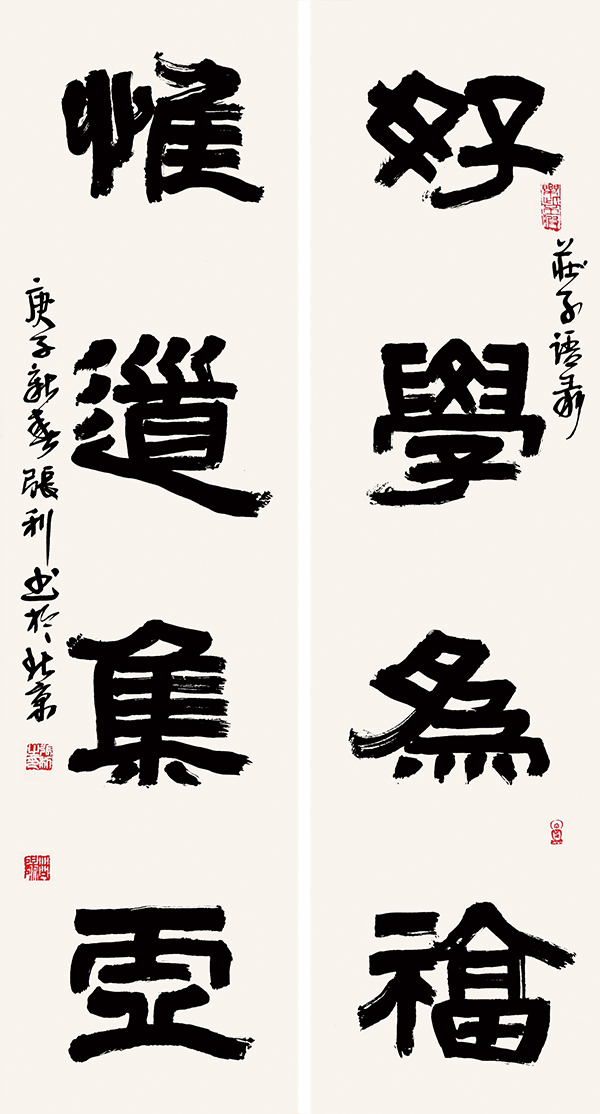 莊子語
好學為福
惟道集虛
庚子新春張利书於北京